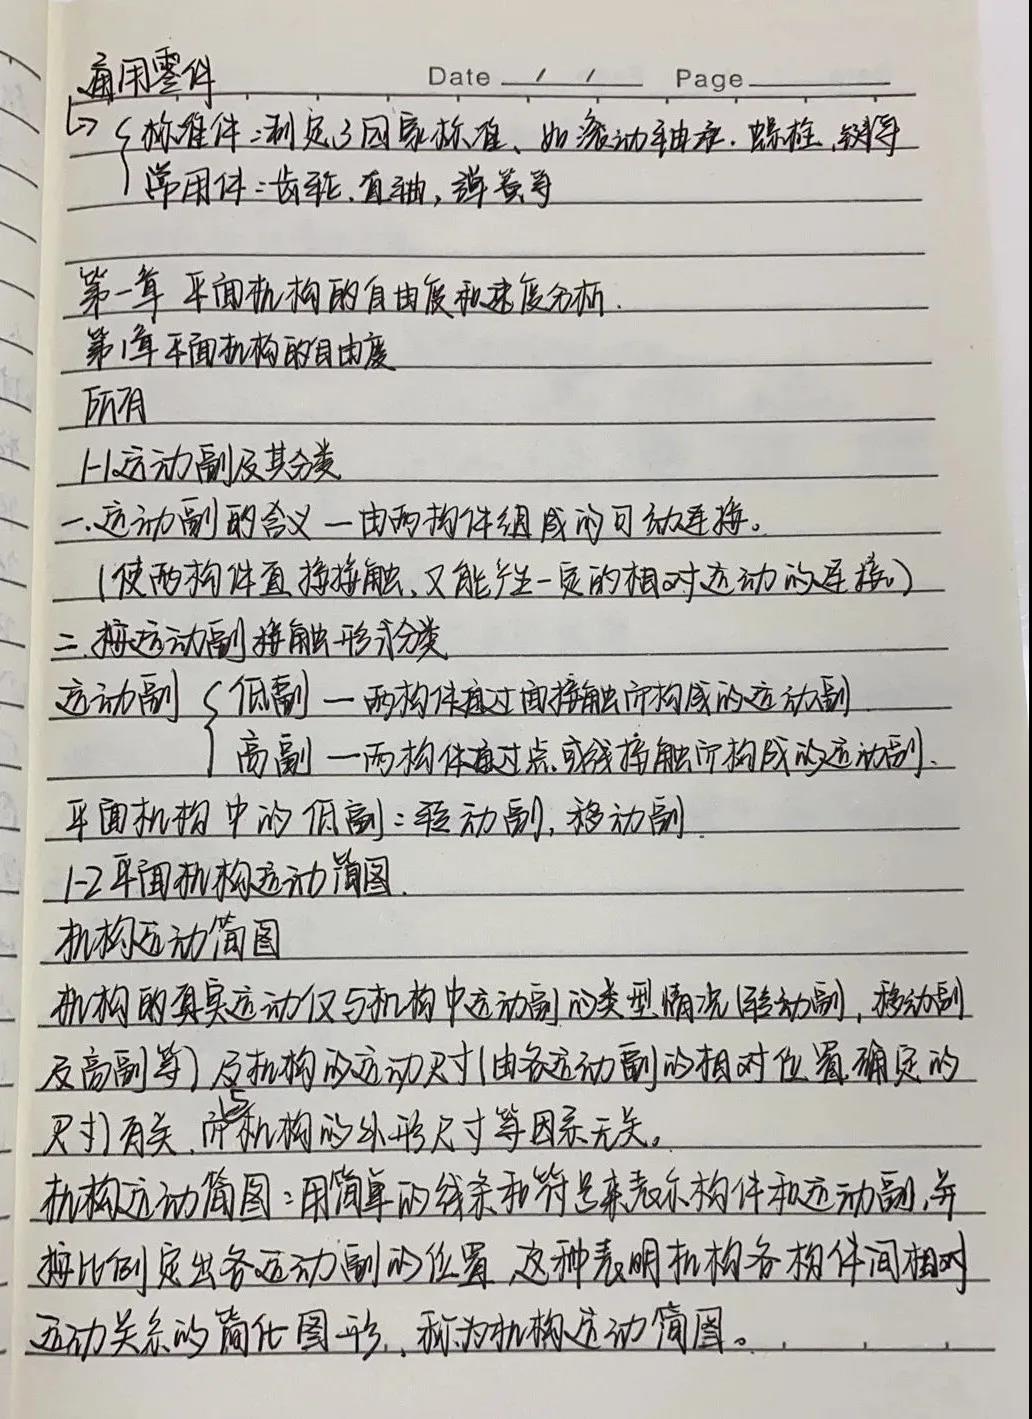 Date / / Page
通用零件
标准件：制定了国家标准、如滚动轴承．螺栓，键等
常用件：齿轮、直轴，弹簧等
第一章 平面机构的自由度和速度分析．
第1章平面机构的自由度
所有
1-1运动副及其分类
一．运动副的含义—由两构件组成的可动连接。
（使两构件直接接触、又能产生一定的相对运动的连接。）
二．按运动副接触形式分类
运动副 { 低副—两构件通过面接触所构成的运动副
高副—两构件通过点、或线接触所构成的运动副．
平面机构中的低副：转动副，移动副．
1-2平面机构运动简图．
机构运动简图
机构的真实运动仅与机构中运动副的类型情况（转动副，移动副
及高副等）及机构的运动尺寸（由各运动副的相对位置确定的
尺寸）有关、而与机构的外形尺寸等因素无关。
机构运动简图：用简单的线条和符号来表示构件和运动副，并
按比例定出各运动副的位置 这种表明机构各构件间相对
运动关系的简化图形，称为机构运动简图。